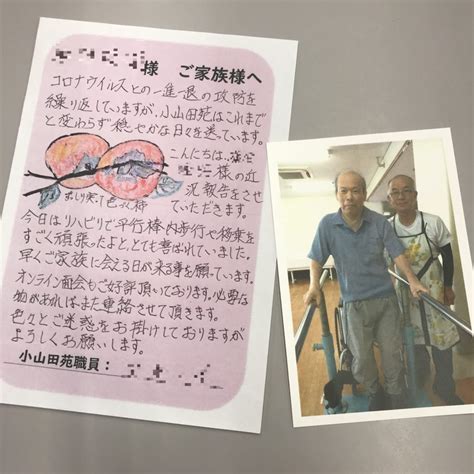 様 ご家族様へ
コロナウイルスとの一進一退の攻防を
繰り返していますが、小山田苑はこれまで
と変わらず穏やかな日々を送っています。
こんにちは。
様の近
況報告をさせ
ていただきます。
色づく柿
今日はリハビリで平行棒内歩行や移乗を
すごく頑張ったよととても喜ばれていました。
早くご家族に会える日が来る事を願っています。
オンライン面会もご好評頂いております。必要な
物があればまた連絡させて頂きます。
色々とご迷惑をお掛けしておりますが
よろしくお願いします。
小山田苑職員: